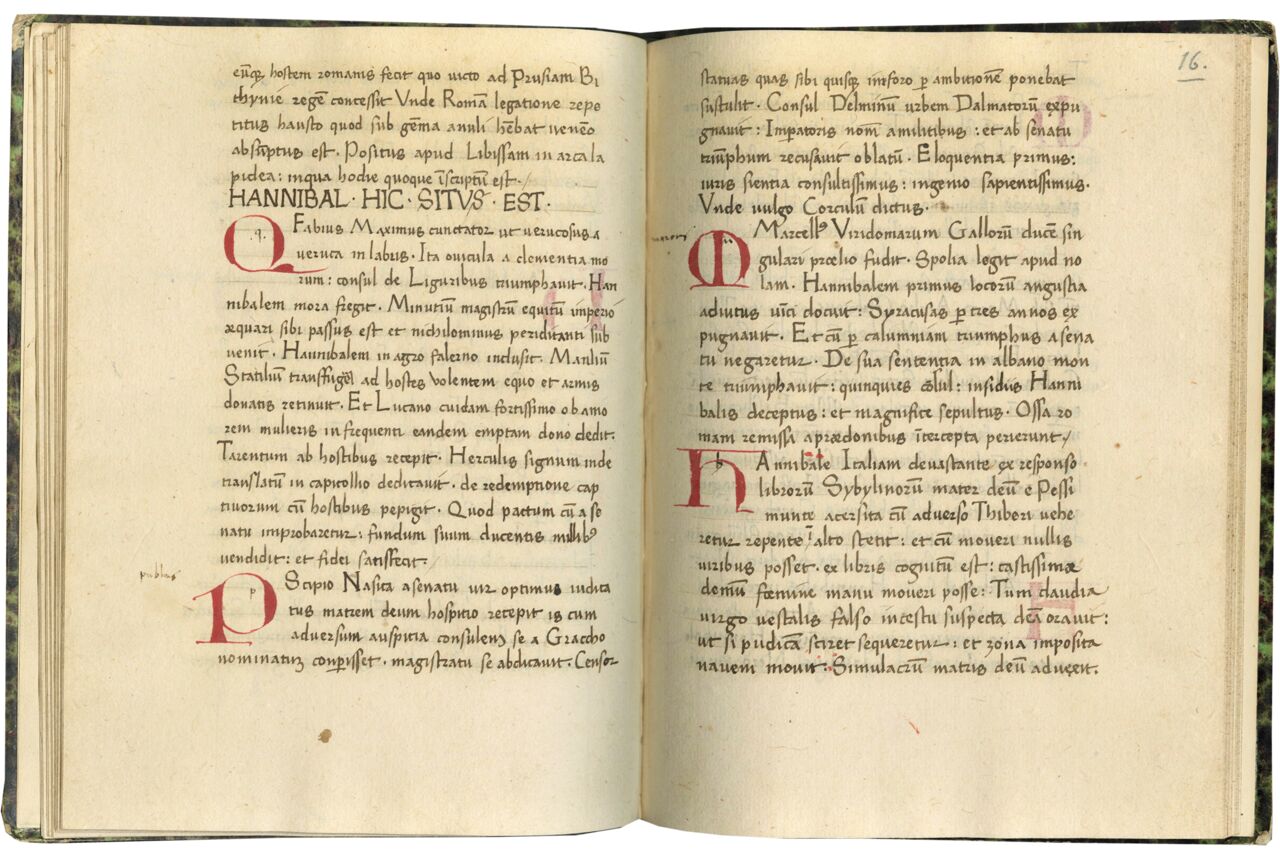 eūq; hostem romanis fecit quo uicto ad Prusiam Bi
thynie regē concessit Vnde Romā legatione repe
titus hausto quod sub gēma anuli hēbat venēo
absūptus est . Positus apud Libissam in arca la
pidea : inqua hodie quoque īscriptū est ./
HANNIBAL · HIC · SITVS · EST ·
Q Fabius Maximus cunctator ut verucosus a
.q. veruca in labus . Ita ovicula a clementia mo
rum : consul de Liguribus triumphavit . Han
nibalem mora fregit . Minutiū magistrū equitū imperio
æquari sibi passus est et nichilominus periditanti sub
venit . Haunibalem in agro falerno inclusit . Manliū
Statiliū ad hostes volentem equo et armis
donatis retinuit . Et Lucano cuidam fortissimo ob amo
rem mulieris in frequenti eandem emptam dono dedit .
Tarentum ab hostibus recepit . Herculis signum inde
translatū in capitollio dedicavit . de redemptione cap
tivorum cū hostibus pepigit . Quod pactum cū a se
natu improbaretur : fundum suum ducentis millibꝰ
vendidit : et fidei satisfecit ./
publius
P Scipio Nasica a senatu vir optimus iudica
p tus matrem deum hospitio recepit is cum
adversum auspitia consulem se a Graccho
nominatum conperisset . magistratu se abdicavit . Censor
16.
statuas quas sibi quisque inforo p ambitionē ponebat
sustulit . Consul Delminū urbem Dalmatorū expu
gnavit : Imperatoris nomē amilitibus : et ab senatu
triūphum recusavit oblatū . Eloquentia primus :
iuris sientia consultissimus : ingenio sapientissimus .
Vnde vulgo Corculū dictus .
M Marcellꝰ Viridomarum Gallorū ducē sin
gulari prœlio fudit . Spolia legit apud no
lam . Hannibalem primus locorū angustia
adiutus vīci docuit : Syracusas p tres annos ex
pugnavit . Et cū p calumniam triumphus a sena
tu negaretur . De sua sententia in albano mon
te triūmphavit : quinquies cōsul : insidiis Hanni
balis deceptus : et magnifice sepultus . Ossa ro
mam remissa aprædonibus ītercepta perierunt ./
H Annibale Italiam devastante ex responso
h librorū Sybylinorū mater deū e Pessi
munte acersita cū adverso Thiberi vehe
retur repente ī alto stetit : et cū moveri nullis
viribus posset . ex libris cognitū est : castissimæ
demū fœmine manu moveri posse : Tum claudia
virgo vestalis falso incestu suspecta deā oravit :
ut si pudicā sciret sequeretur : et zona imposita
navem movit . Simulacrū matris deū advexit .